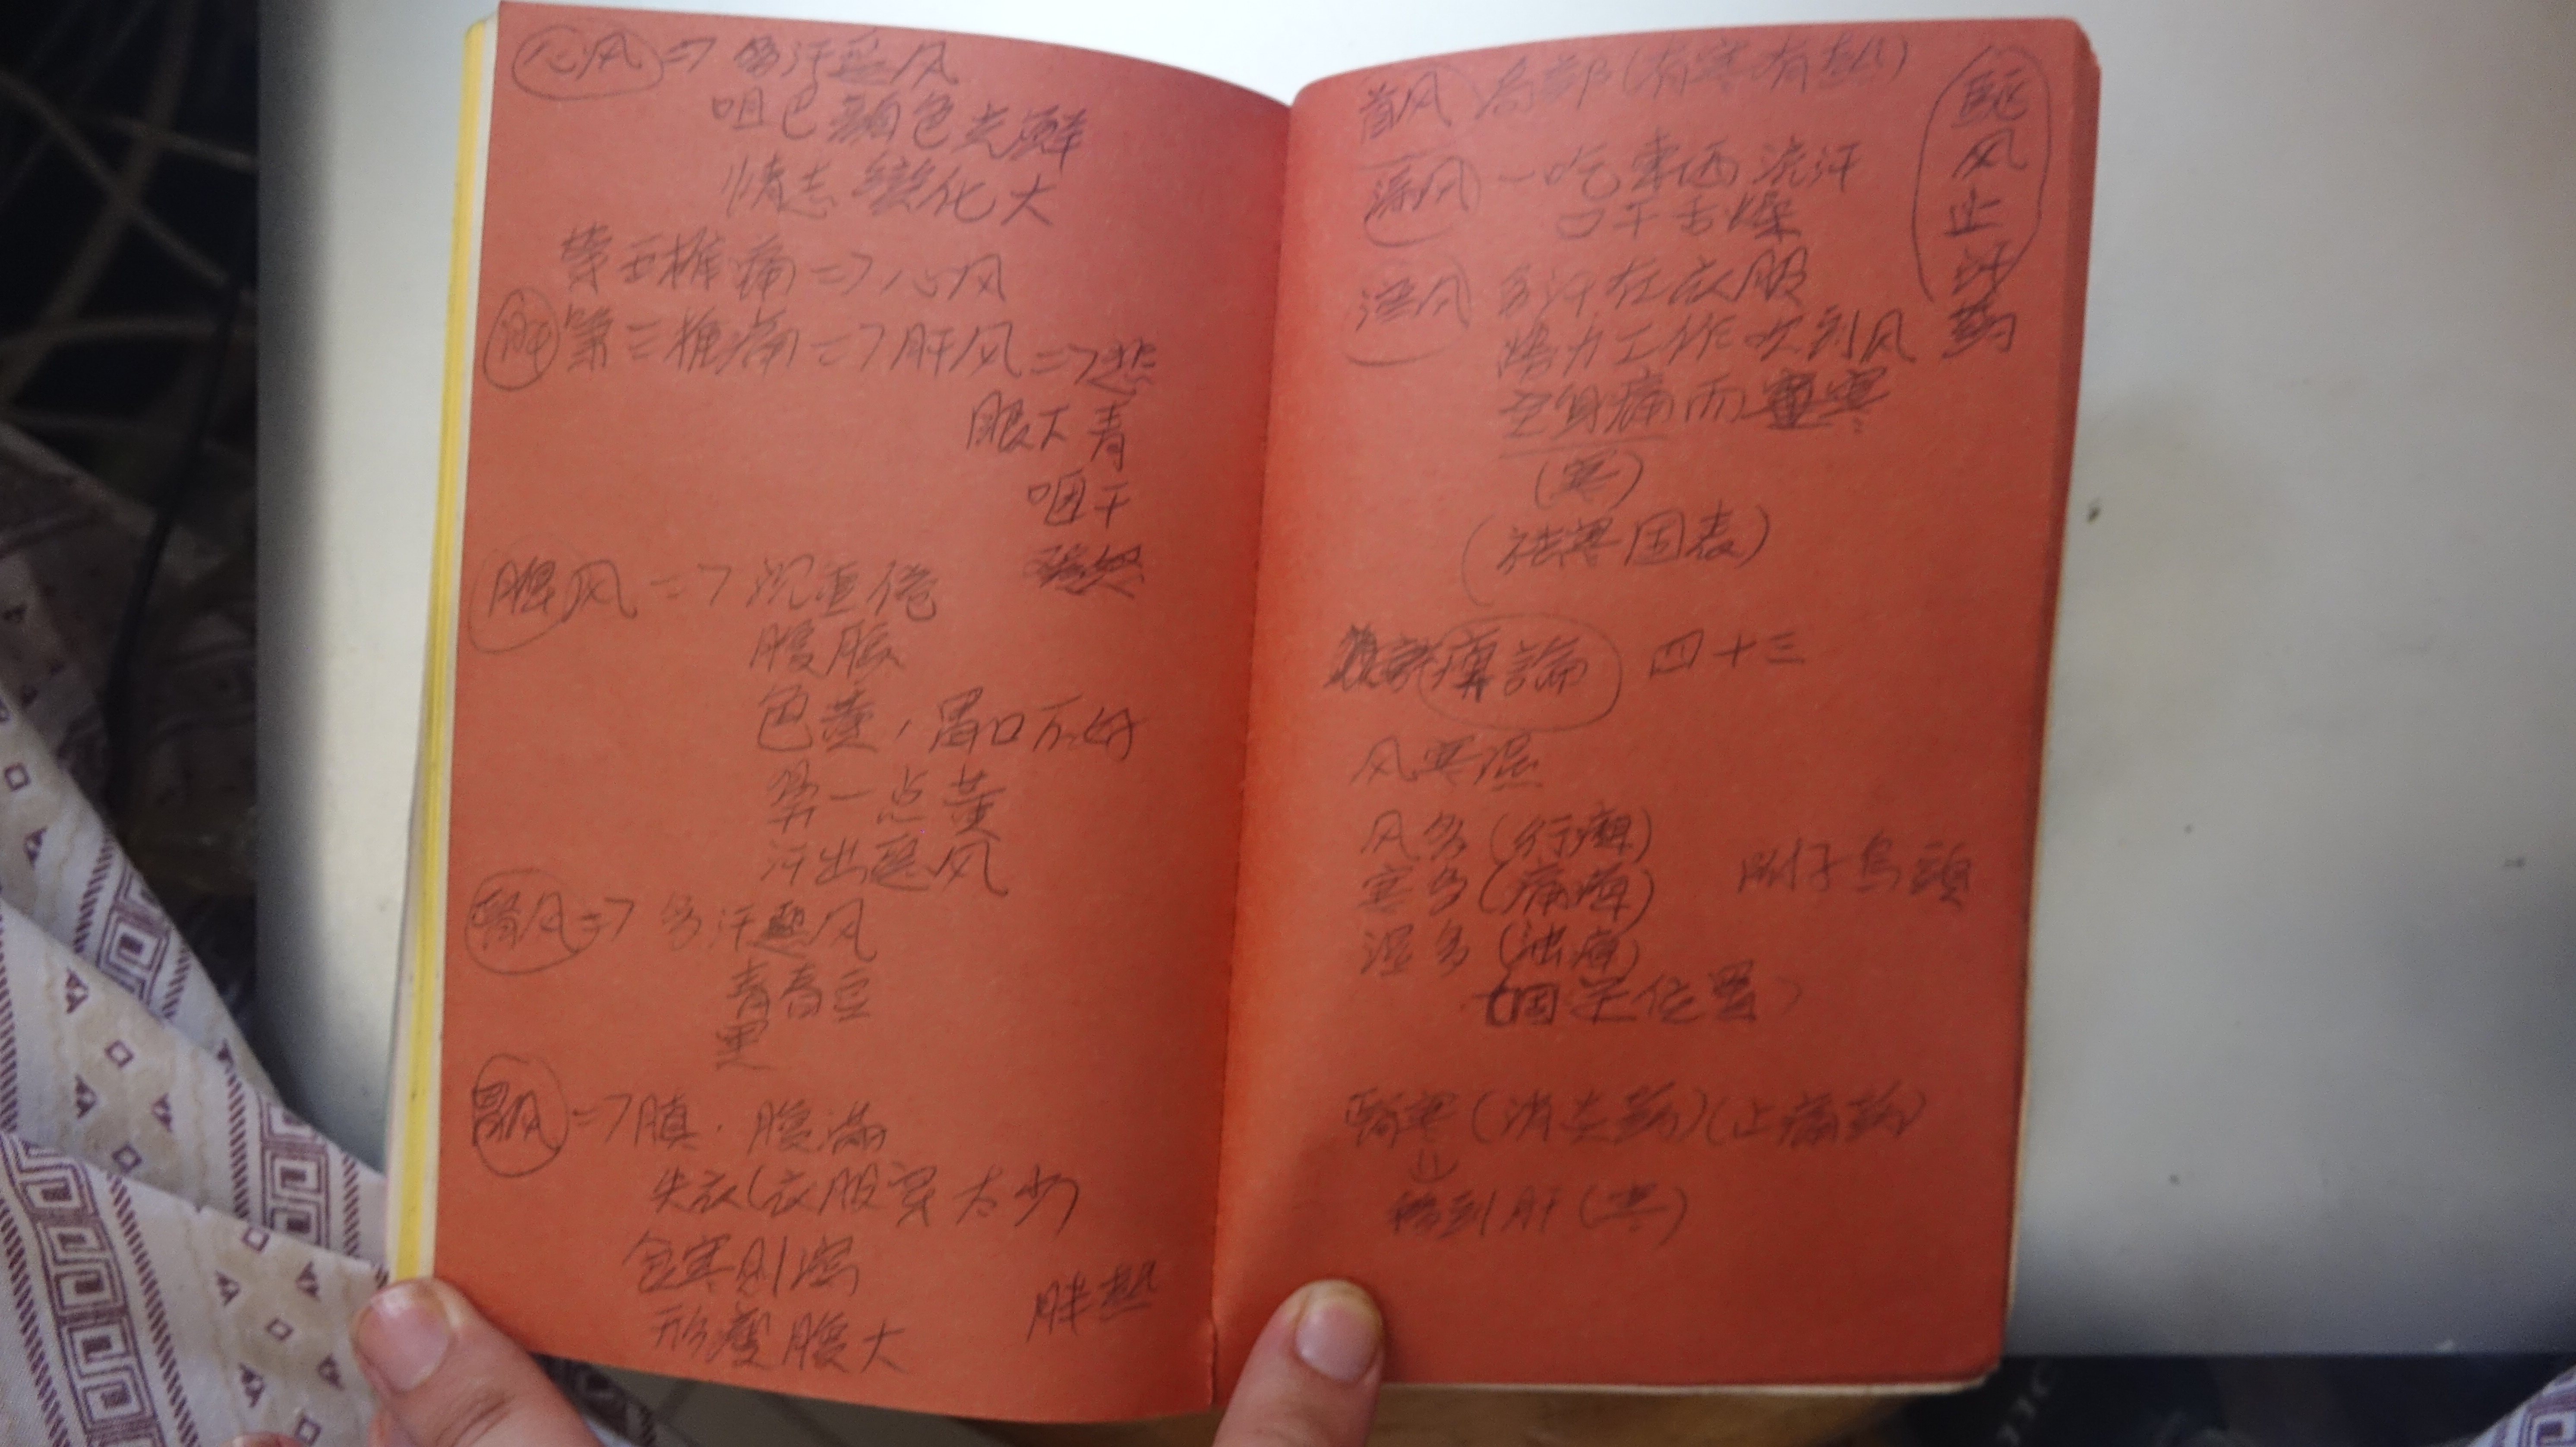 心风 => 多汗恶风
咀巴颜色光鲜
情志變化大
第五椎痛 => 心风
肝 第三椎痛 => 肝风 => 悲
眼下青
咽干
脾风 => 沉重倦
腹脹
色黄，胃口不好
鼻一点黄
汗出恶风
腎风 => 多汗恶风
青春豆
黑
胃风 => 膹．腹滿
失衣（衣服穿太少）
食寒則瀉
形瘦腹大
胖熱
首风 局部（有寒有熱）
漏风 一吃東西流汗
口干舌燥
泄风 多汗在衣服
努力工作吹到风
全身痛而
（寒）
（祛寒固表）
驱风止汗药
痺論 四十三
风寒湿
风多（行痺）
寒多（痛痺） 附子烏頭
湿多（
位置）
（消炎药）（止痛药）
到肝（寒）